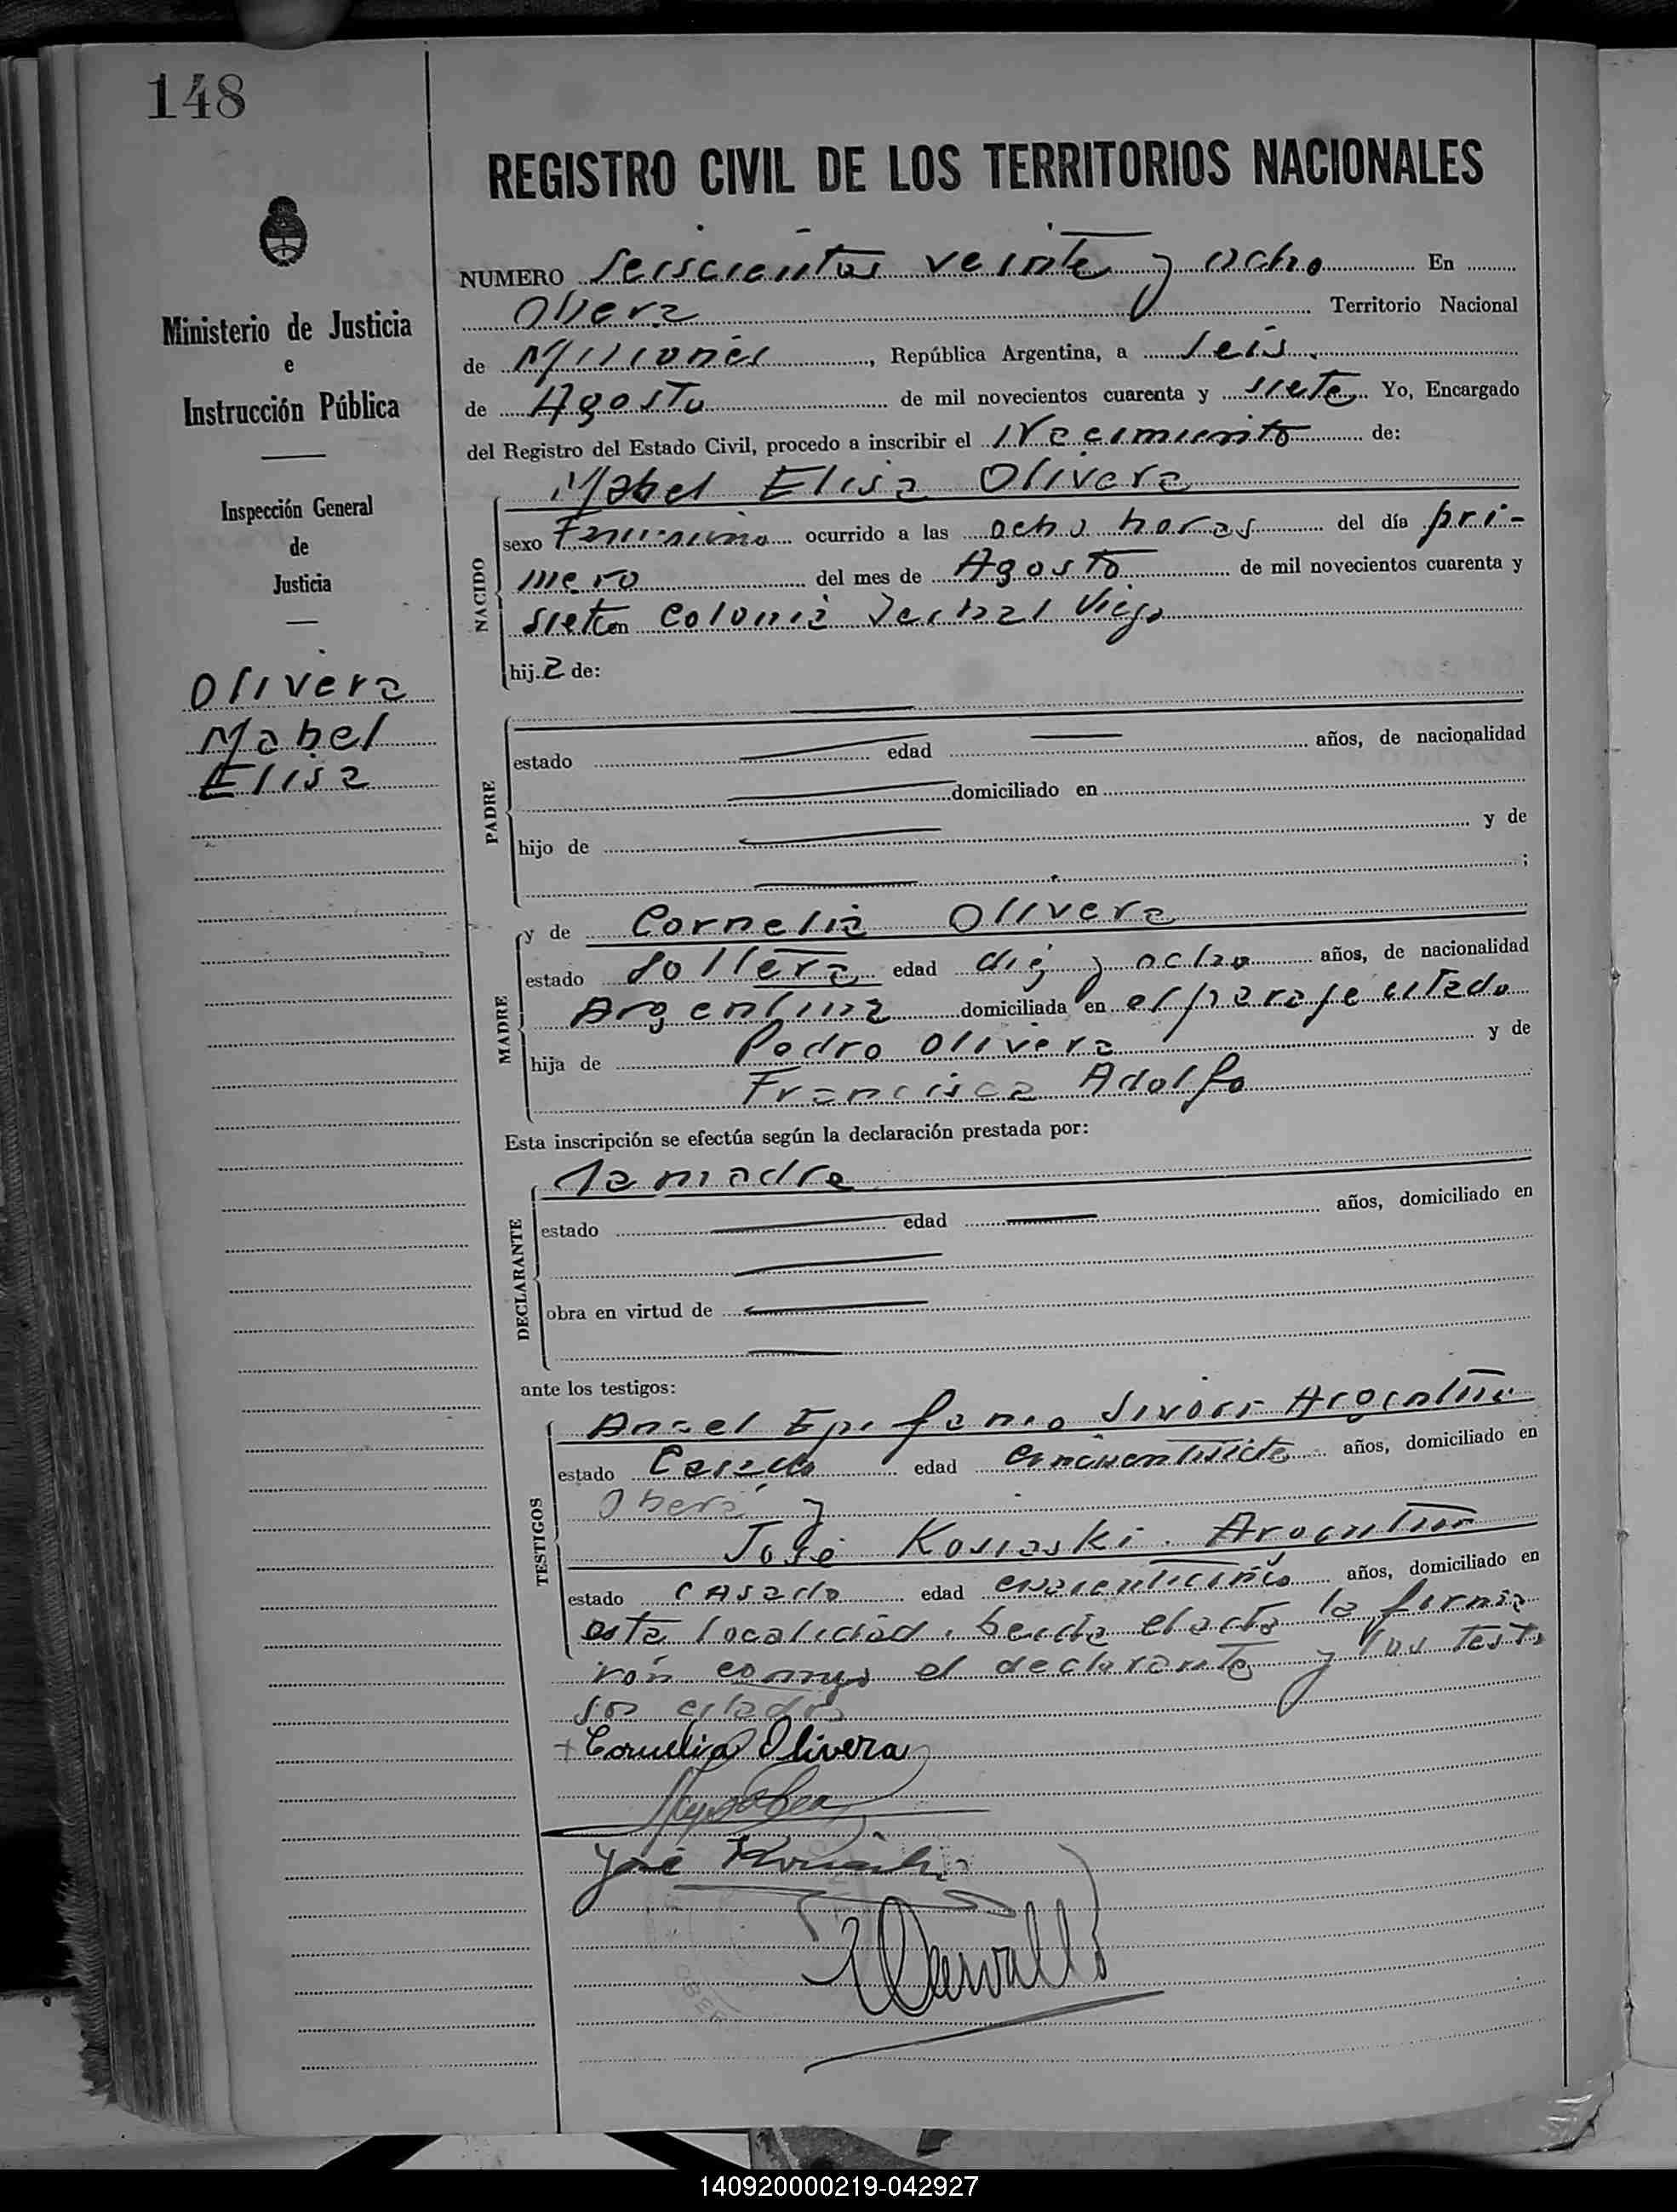 148
REGISTRO CIVIL DE LOS TERRITORIOS NACIONALES
NUMERO Seiscientos veinte y ocho En
Ministerio de Justicia
e
Instrucción Pública
Inspección General
de
Justicia
Olivera
Mabel
Elisa
Obera Territorio Nacional
de Misiones, República Argentina, a seis
de Agosto de mil novecientos cuarenta y siete Yo, Encargado
del Registro del Estado Civil, procedo a inscribir el Nacimiento de:
NACIDO
Mabel Elisa Olivera
sexo Femenino ocurrido a las ocho horas del día pri-
mero del mes de Agosto de mil novecientos cuarenta y
siete en Colonia Yerbal Viejo
hija de:
PADRE
estado edad años, de nacionalidad
domiciliado en
hijo de y de
;
MADRE
y de Cornelia Olivera
estado Soltera edad diez y ocho años, de nacionalidad
Argentina domiciliada en el paraje citado
hija de Pedro Olivera y de
Francisca Adolfo
Esta inscripción se efectúa según la declaración prestada por:
DECLARANTE
la madre
estado edad años, domiciliado en
obra en virtud de
ante los testigos:
TESTIGOS
Angel Epifanio Sivori Argentino
estado Casado edad años, domiciliado en
Oberá y
José Kosiaski. Argentino
estado casado edad años, domiciliado en
esta localidad. Leida el acta la firma
ron conmigo el declarante y los testi
gos citados
+ Cornelia Olivera
José
140920000219-042927